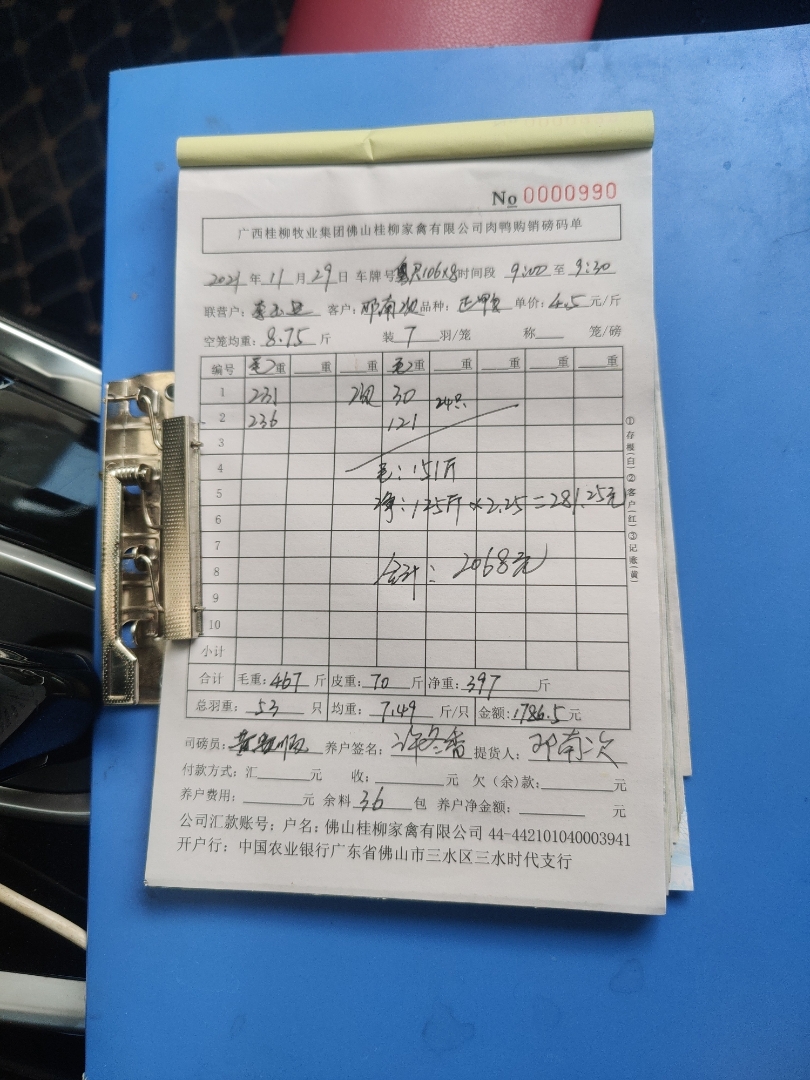 No 0000990
广西桂柳牧业集团佛山桂柳家禽有限公司肉鸭购销磅码单
2021 年 11 月 29 日 车牌号 粤R106X8 时间段 9:00 至 9:30
联营户: 客户: 邓南次 品种: 正甲 单价: 4.5 元/斤
空笼均重: 8.75 斤 装 7 羽/笼 称 笼/磅
编号 毛重 重 重 毛重 重 重 重 重
1 231 30 24只
2 236 121
3
4 毛: 151斤
5 净: 125斤 × 2.25 = 281.25元
6
7
8 合计: 2068元
9
10
小计
合计 毛重: 467 斤 皮重: 70 斤 净重: 397 斤
总羽重: 53 只 均重: 7.49 斤/只 金额: 1786.5 元
司磅员: 养户签名: 许冬香 提货人: 邓南次
付款方式: 汇 元 收: 元 欠(余)款: 元
养户费用: 元 余料 36 包 养户净金额: 元
公司汇款账号; 户名; 佛山桂柳家禽有限公司 44-442101040003941
开户行; 中国农业银行广东省佛山市三水区三水时代支行
①存根(白)②客户(红)③记账(黄)